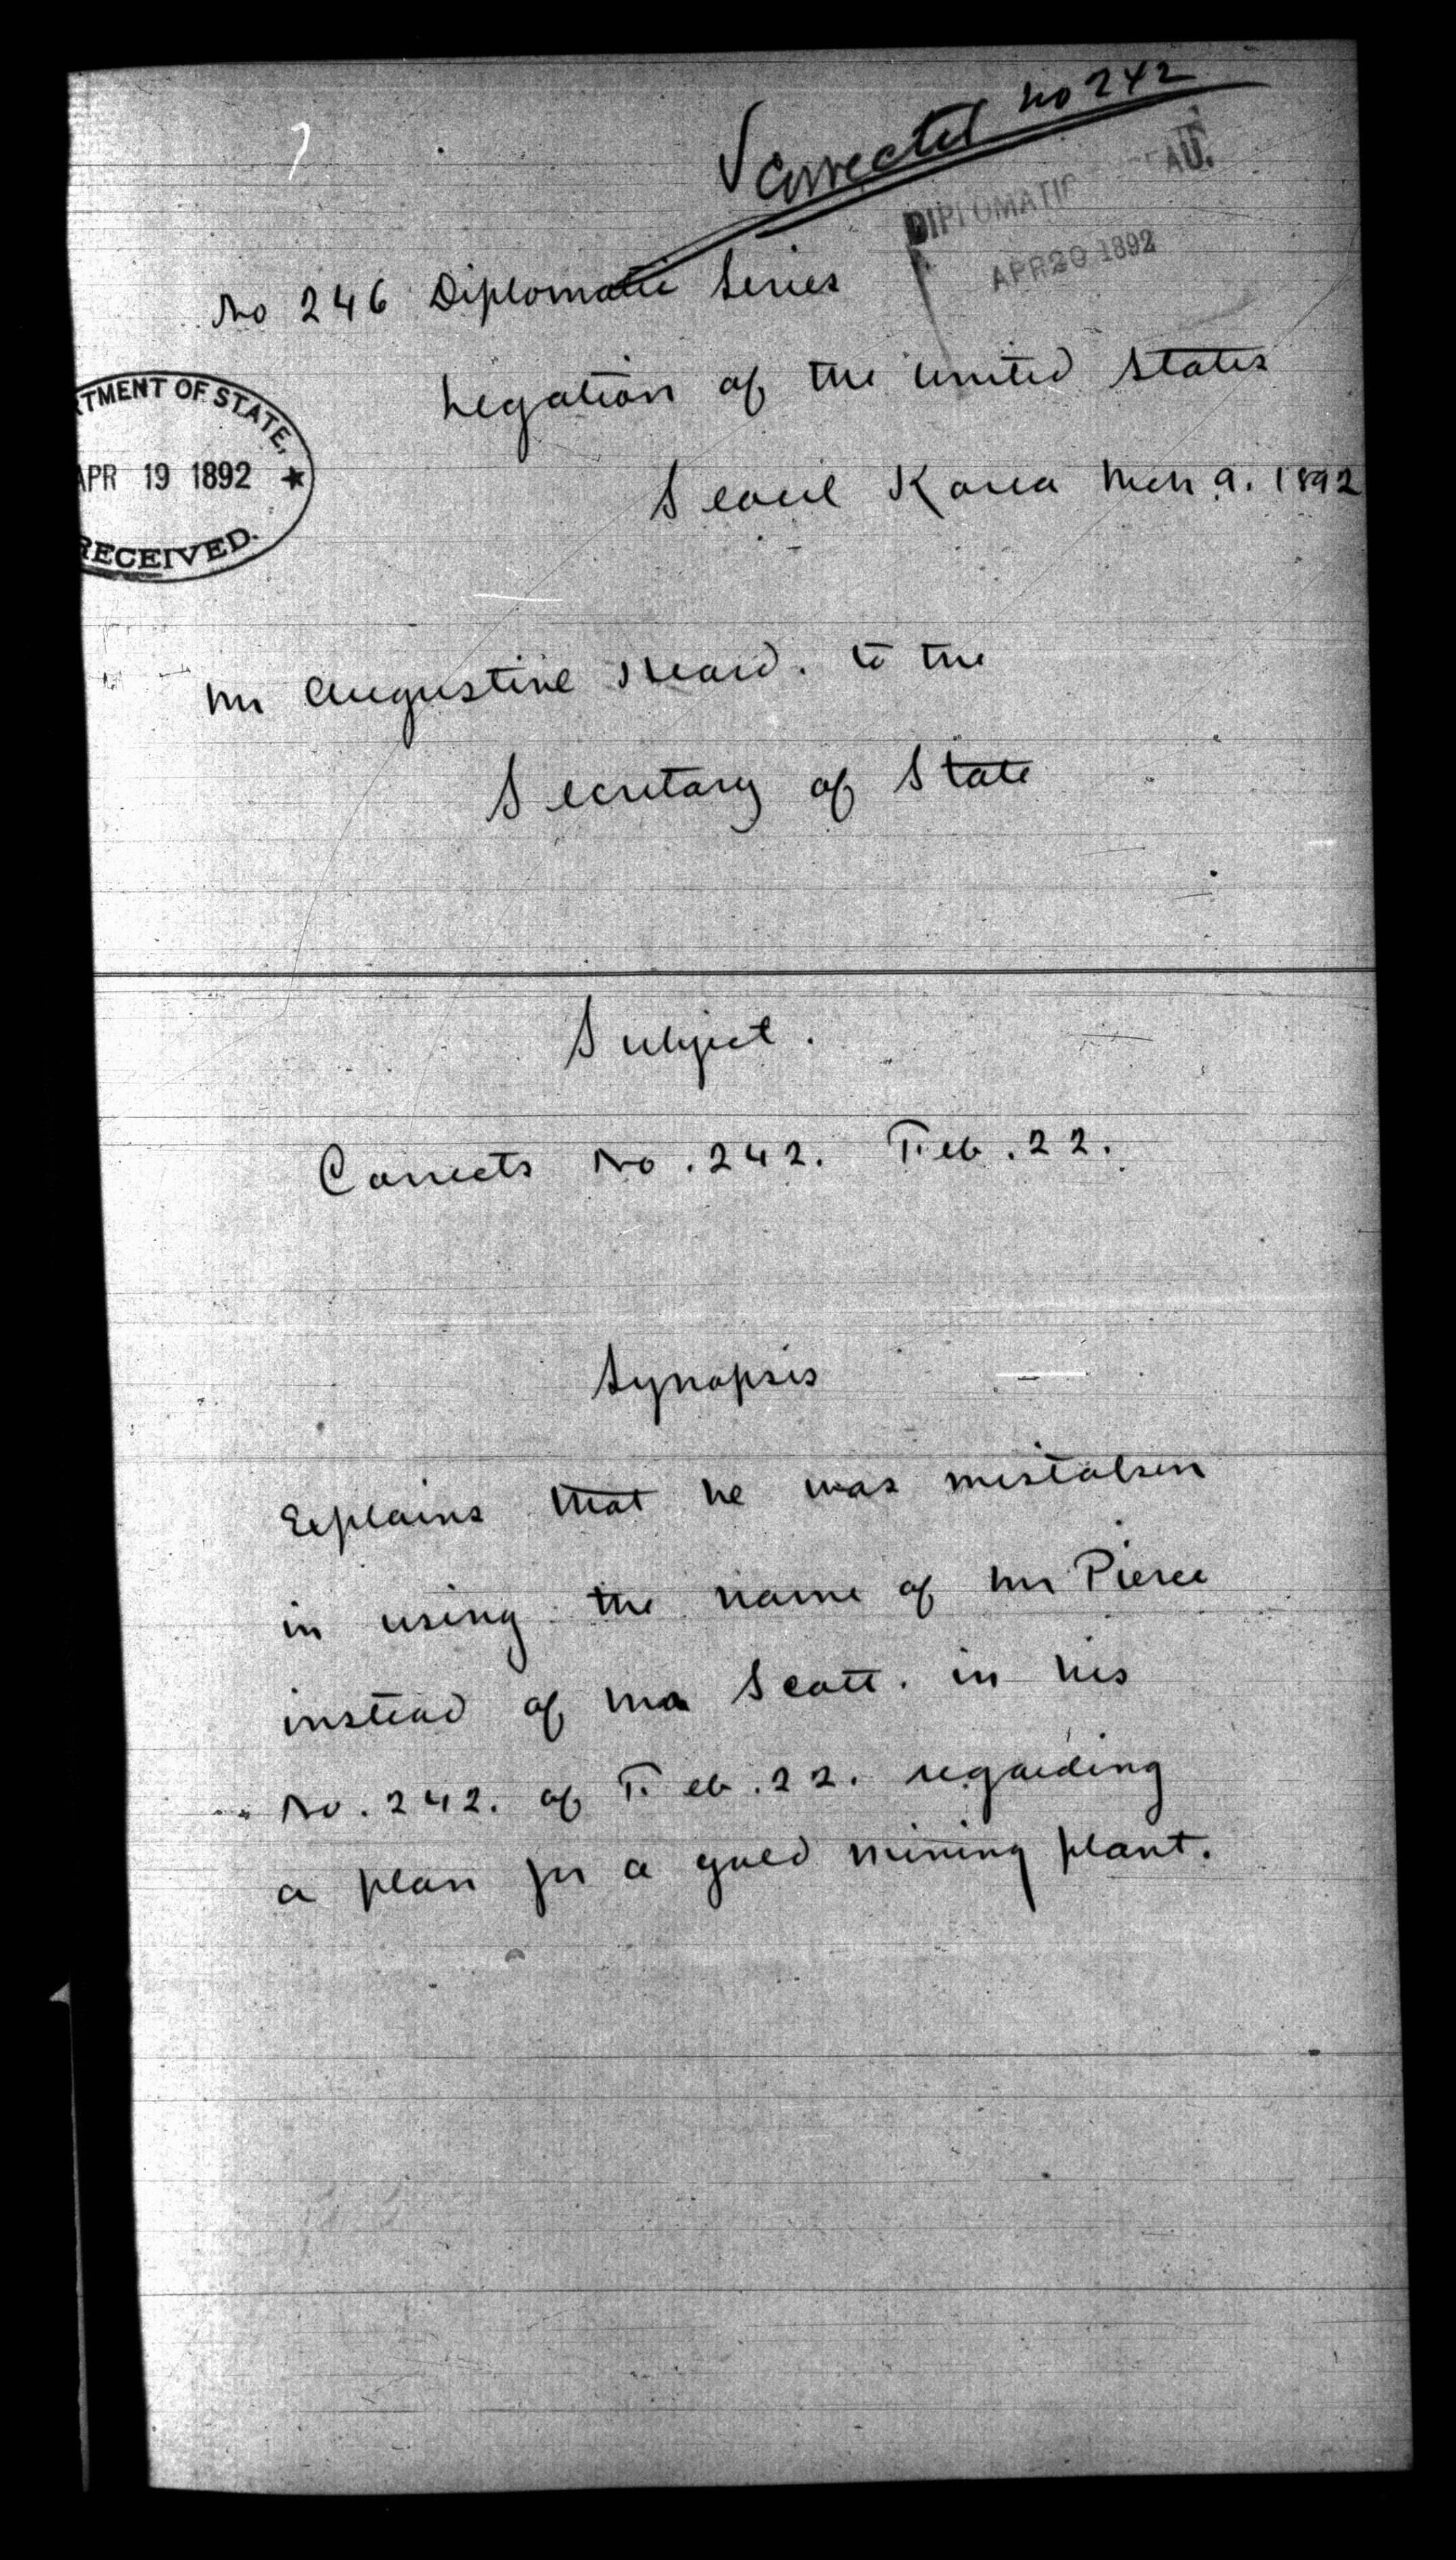 √ Corrected no 242
DIPLOMATIC AU.
APR 20 1892
No 246 Diplomatic Series
Legation of the United States
TMENT OF STATE,
APR 19 1892 ★
RECEIVED.
Seoul Korea Mch 9. 1892
Mr Augustine Heard. to the
Secretary of State
Subject.
Corrects No. 242. Feb. 22.
Synopsis
Explains that he was mistaken
in using the name of Mr Pierce
instead of Mr Scott. in his
No. 242. of Feb. 22. regarding
a plan for a gold mining plant.